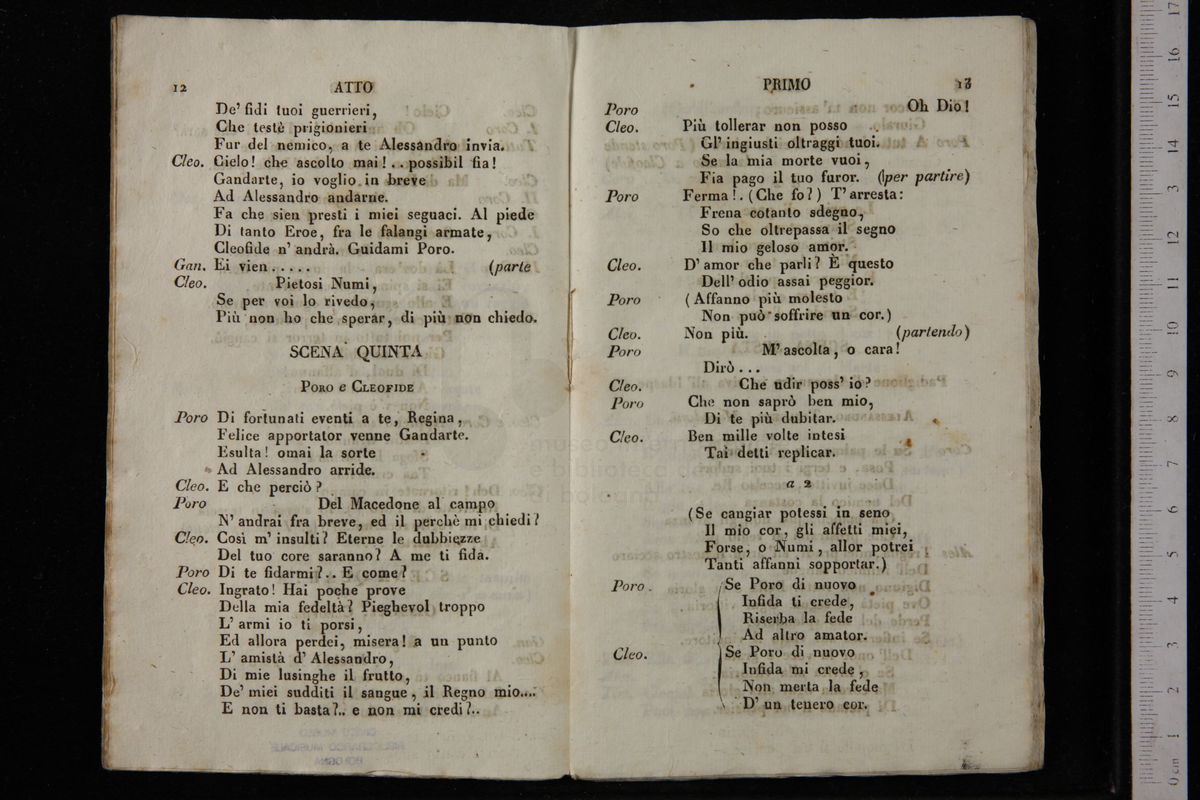 12 ATTO
De' fidi tuoi guerrieri,
Che testè prigionieri
Fur del nemico, a te Alessandro invia.
Cleo. Cielo! che ascolto mai!.. possibil fia!
Gandarte, io voglio in breve
Ad Alessandro andarne.
Fa che sien presti i miei seguaci. Al piede
Di tanto Eroe, fra le falangi armate,
Cleofide n' andrà. Guidami Poro.
Gan. Ei vien..... (parte
Cleo. Pietosi Numi,
Se per voi lo rivedo,
Più non ho che sperar, di più non chiedo.
SCENA QUINTA
PORO e CLEOFIDE
Poro Di fortunati eventi a te, Regina,
Felice apportator venne Gandarte.
Esulta! omai la sorte
Ad Alessandro arride.
Cleo. E che perciò?
Poro Del Macedone al campo
N' andrai fra breve, ed il perchè mi chiedi?
Cleo. Così m' insulti? Eterne le dubbiezze
Del tuo core saranno? A me ti fida.
Poro Di te fidarmi?.. E come?
Cleo. Ingrato! Hai poche prove
Della mia fedeltà? Pieghevol troppo
L' armi io ti porsi,
Ed allora perdei, misera! a un punto
L' amistà d' Alessandro,
Di mie lusinghe il frutto,
De' miei sudditi il sangue, il Regno mio....
E non ti basta?.. e non mi credi?..
PRIMO 13
Poro Oh Dio!
Cleo. Più tollerar non posso
Gl' ingiusti oltraggi tuoi.
Se la mia morte vuoi,
Fia pago il tuo furor. (per partire)
Poro Ferma!. (Che fo?) T' arresta:
Frena cotanto sdegno,
So che oltrepassa il segno
Il mio geloso amor.
Cleo. D' amor che parli? È questo
Dell' odio assai peggior.
Poro (Affanno più molesto
Non può soffrire un cor.)
Cleo. Non più. (partendo)
Poro M' ascolta, o cara!
Dirò...
Cleo. Che udir poss' io?
Poro Che non saprò ben mio,
Di te più dubitar.
Cleo. Ben mille volte intesi
Tai detti replicar.
a 2
(Se cangiar potessi in seno
Il mio cor, gli affetti miei,
Forse, o Numi, allor potrei
Tanti affanni sopportar.)
Poro. Se Poro di nuovo
Infida ti crede,
Riserba la fede
Ad altro amator.
Cleo. Se Poro di nuovo
Infida mi crede,
Non merta la fede
D' un tenero cor.